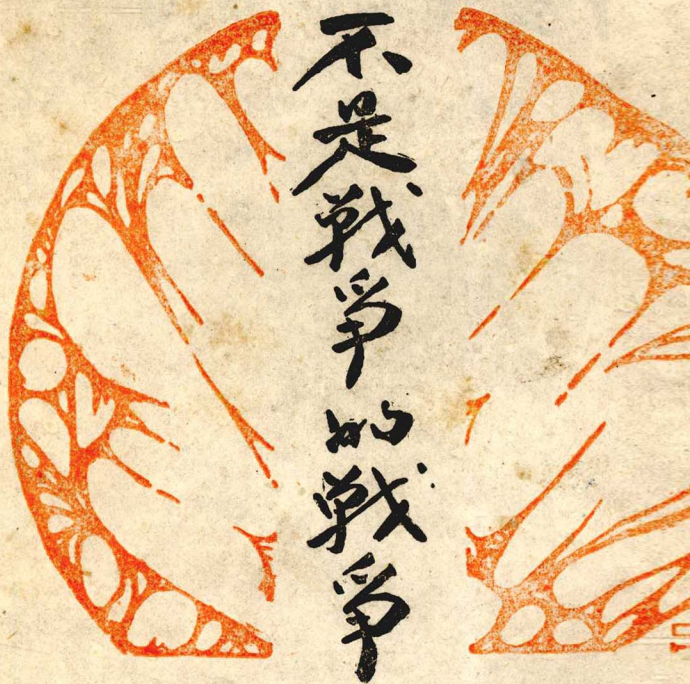 不是戰爭的戰爭